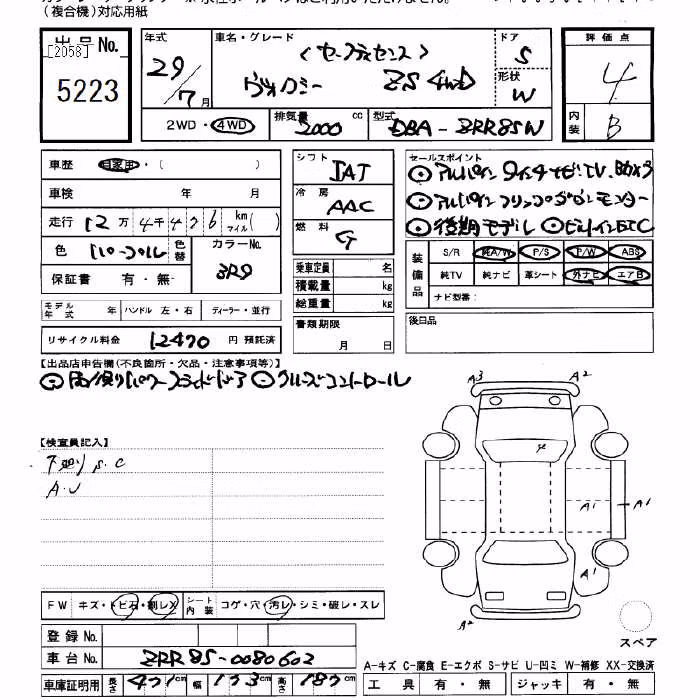 (複合機)対応用紙
出品No.
[2058]
5223
年式
29/7月
車名・グレード
〈セーフティセンス〉
ヴォクシー ZS 4WD
ドア
5
形状
W
評価点
4
内装
B
2WD・4WD
排気量
2000 cc
型式
DBA-ZRR85W
車歴 自家用・( )
車検 年 月
走行 12万4千476 km マイル( )
色
色替
カラーNo.
3R9
保証書 有・無
モデル年式 年 ハンドル 左・右 ディーラー・並行
リサイクル料金 12470 円 預託済
シフト
IAT
冷房
AAC
燃料
G
乗車定員 名
積載量 kg
総重量 kg
書類期限
月 日
セールスポイント
◎アルパイン 9インチナビTV. BOX3
◎アルパインフリップダウンモニター
◎後期モデル ◎ビルトインETC
装備品
S/R 純A/W P/S P/W ABS
純TV 純ナビ 革シート 外ナビ エアB
ナビ型番:
後日品
【出品店申告欄(不良箇所・欠品・注意事項等)】
◎両側パワースライドドア ◎クルーズコントロール
【検査員記入】
下廻りS.C
A.U
A3 A2
A1 A1
A1
A2
スペア
FW キズ・トビ石・割レX
シート内装 コゲ・穴・汚レ・シミ・破レ・スレ
登録No.
車台No. ZRR85-0080602
車庫証明用 長さ 471cm 幅 173cm 高さ 187cm
A-キズ C-腐食 E-エクボ S-サビ U-凹ミ W-補修 XX-交換済
工具 有・無 ジャッキ 有・無